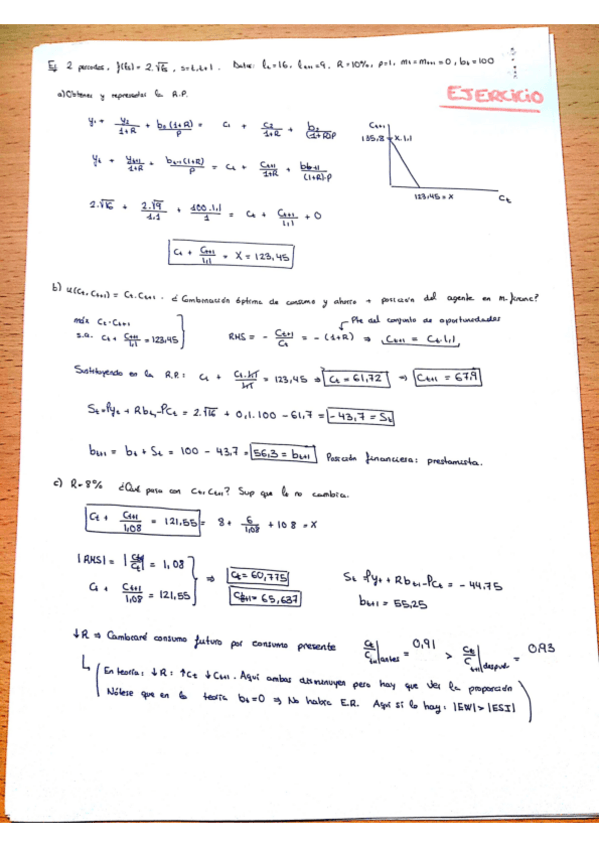 Ej 2 periodos, f(ls) = 2·√ls , s=t,t+1. Datos: lt=16, lt+1=9, R=10%, p=1, mt=mt+1=0, bt=100
EJERCICIO
a) Obtener y representar la R.P.
y1 + y2/1+R + b1(1+R)/P = c1 + c2/1+R + b2/(1+R)P
yt + yt+1/1+R + bt(1+R)/P = ct + ct+1/1+R + bt+1/(1+R)·P
2·√16 + 2·√9/1,1 + 100·1,1/1 = ct + ct+1/1,1 + 0
ct + ct+1/1,1 = X = 123,45
Ct+1
135,8 = X·1,1
123,45 = X
Ct
b) u(ct, ct+1) = ct·ct+1. ¿Combinación óptima de consumo y ahorro + posición del agente en m. financ?
máx ct·ct+1
s.a. ct + ct+1/1,1 = 123,45
RMS = - ct+1/ct = -(1+R) ⇒ ct+1 = ct·1,1
Pte del conjunto de oportunidades
Sustituyendo en la R.P.: ct + ct·1,1/1,1 = 123,45 ⇒ ct = 61,72 ⇒ ct+1 = 67,9
St = Pyt + Rbt - Pct = 2·√16 + 0,1·100 - 61,7 = -43,7 = St
bt+1 = bt + St = 100 - 43,7 = 56,3 = bt+1 Posición financiera: prestamista.
c) R=8% ¿Qué pasa con ct, ct+1? Sup que l no cambia.
ct + ct+1/1,08 = 121,55 = 8 + 6/1,08 + 108 = X
|RMS| = |ct+1/ct| = 1,08
ct + ct+1/1,08 = 121,55
⇒ ct = 60,775
ct+1 = 65,637
St = Pyt + Rbt - Pct = -44,75
bt+1 = 55,25
↓R ⇒ Cambiaré consumo futuro por consumo presente ct/ct+1|antes = 0,91 > ct/ct+1|después = 0,93
En teoría: ↓R: ↑ct ↓ct+1. Aquí ambas disminuyen pero hay que ver la proporción
Nótese que en la teoría bt=0 ⇒ No habría E.R. Aquí sí lo hay: |EW| > |ESI|